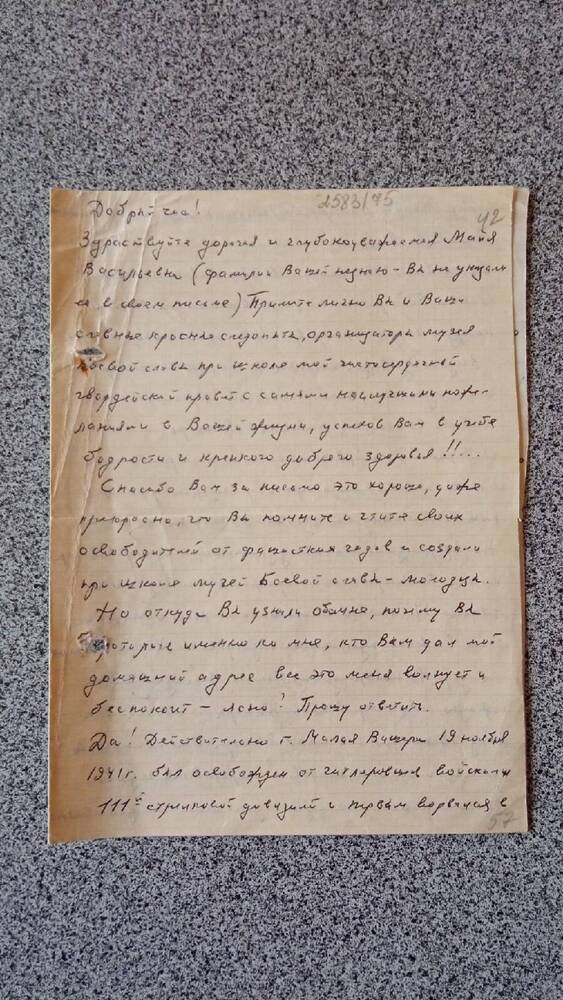 2583/75
42
Добрый час!
Здраствуйте дорогая и глубокоуважаемая Майя
Васильевна (фамилии Вашей не знаю - Вы не указали
ее в своем письме) Примите лично Вы и Ваши
славные красные следопыты, организаторы музея
боевой славы при школе мой чистосердечный
гвардейский привет с самыми наилучшими поже-
ланиями в Вашей жизни, успехов Вам в учебе
бодрости и крепкого доброго здоровья!!!...
Спасибо Вам за письмо это хорошо, даже
прекрасно, что Вы помните и чтите своих
освободителей от фашистких гадов и создали
при школе музей Боевой славы - молодцы.
Но откуда Вы узнали обо мне, почему Вы
обратились именно ко мне, кто Вам дал мой
домашний адрес все это меня волнует и
беспокоит - ясно! Прошу ответить.
Да! Действительно г. Малая Вишера 19 ноября
1941г. был освобожден от гитлеровцев войсками
111й стрелковой дивизией и первым ворвался в
57